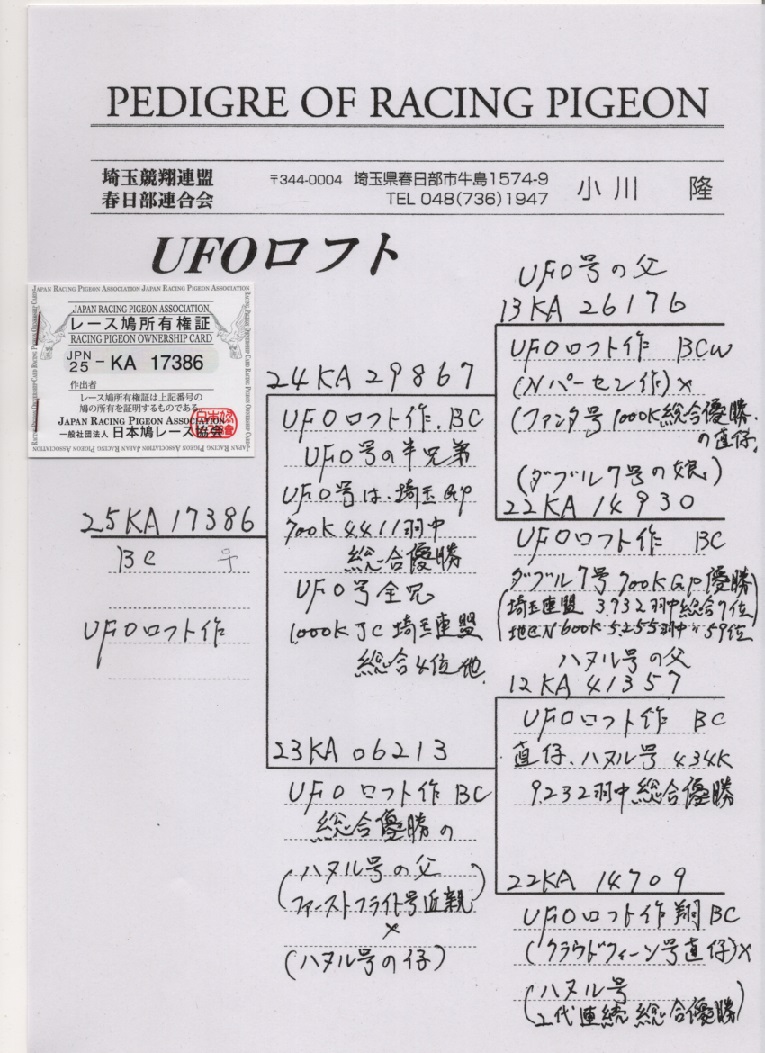 PEDIGRE OF RACING PIGEON
埼玉競翔連盟
春日部連合会
〒344-0004 埼玉県春日部市牛島1574-9
TEL 048(736)1947
小川 隆
UFOロフト
JAPAN RACING PIGEON ASSOCIATION JAPAN RACING PIGEON ASSOCIATION
JAPAN RACING PIGEON ASSOCIATION
レース鳩所有権証
RACING PIGEON OWNERSHIP CARD
JPN
25 - KA 17386
作出者
レース鳩所有権証は上記番号の
鳩の所有を証明するものである
JAPAN RACING PIGEON ASSOCIATION
一般社団法人 日本鳩レース協会
25KA17386
BC ♀
UFOロフト作
24KA 29867
UFOロフト作、BC
UFO号の半兄弟
UFO号は、埼玉GP
700K 4411羽中
総合優勝
UFO号全兄
1000K JC 埼玉連盟
総合4位他.
23KA 06213
UFOロフト作 BC
総合優勝の
(ハヌル号の父
ファーストフライト号近親)
×
(ハヌル号の仔)
UFO号の父
13KA 26176
UFOロフト作 BCW
(Nパーセン作)×
(ファンタ号1000K総合優勝.
の直仔.
(ダブル7号の娘)
22KA 14930
UFOロフト作 BC
ダブル7号 700K GP優勝
(埼玉連盟 3.732羽中総合7位
地CN 600K 5.255羽中〃59位)
ハヌル号の父
12KA 41357
UFOロフト作 BC
直仔.ハヌル号 434K
9.232羽中総合優勝
22KA 14709
UFOロフト作翔BC
(クラウドウィーン号直仔)×
(ハヌル号
2代連続 総合優勝)